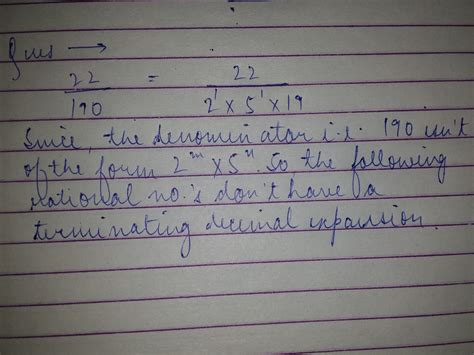 Ques →
22/190 = 22/2¹ x 5¹ x 19
Since, the denominator i.e. 190 isn't
of the form 2ᵐ x 5ⁿ. So, the following
rational no.'s don't have a
terminating decimal expansion.